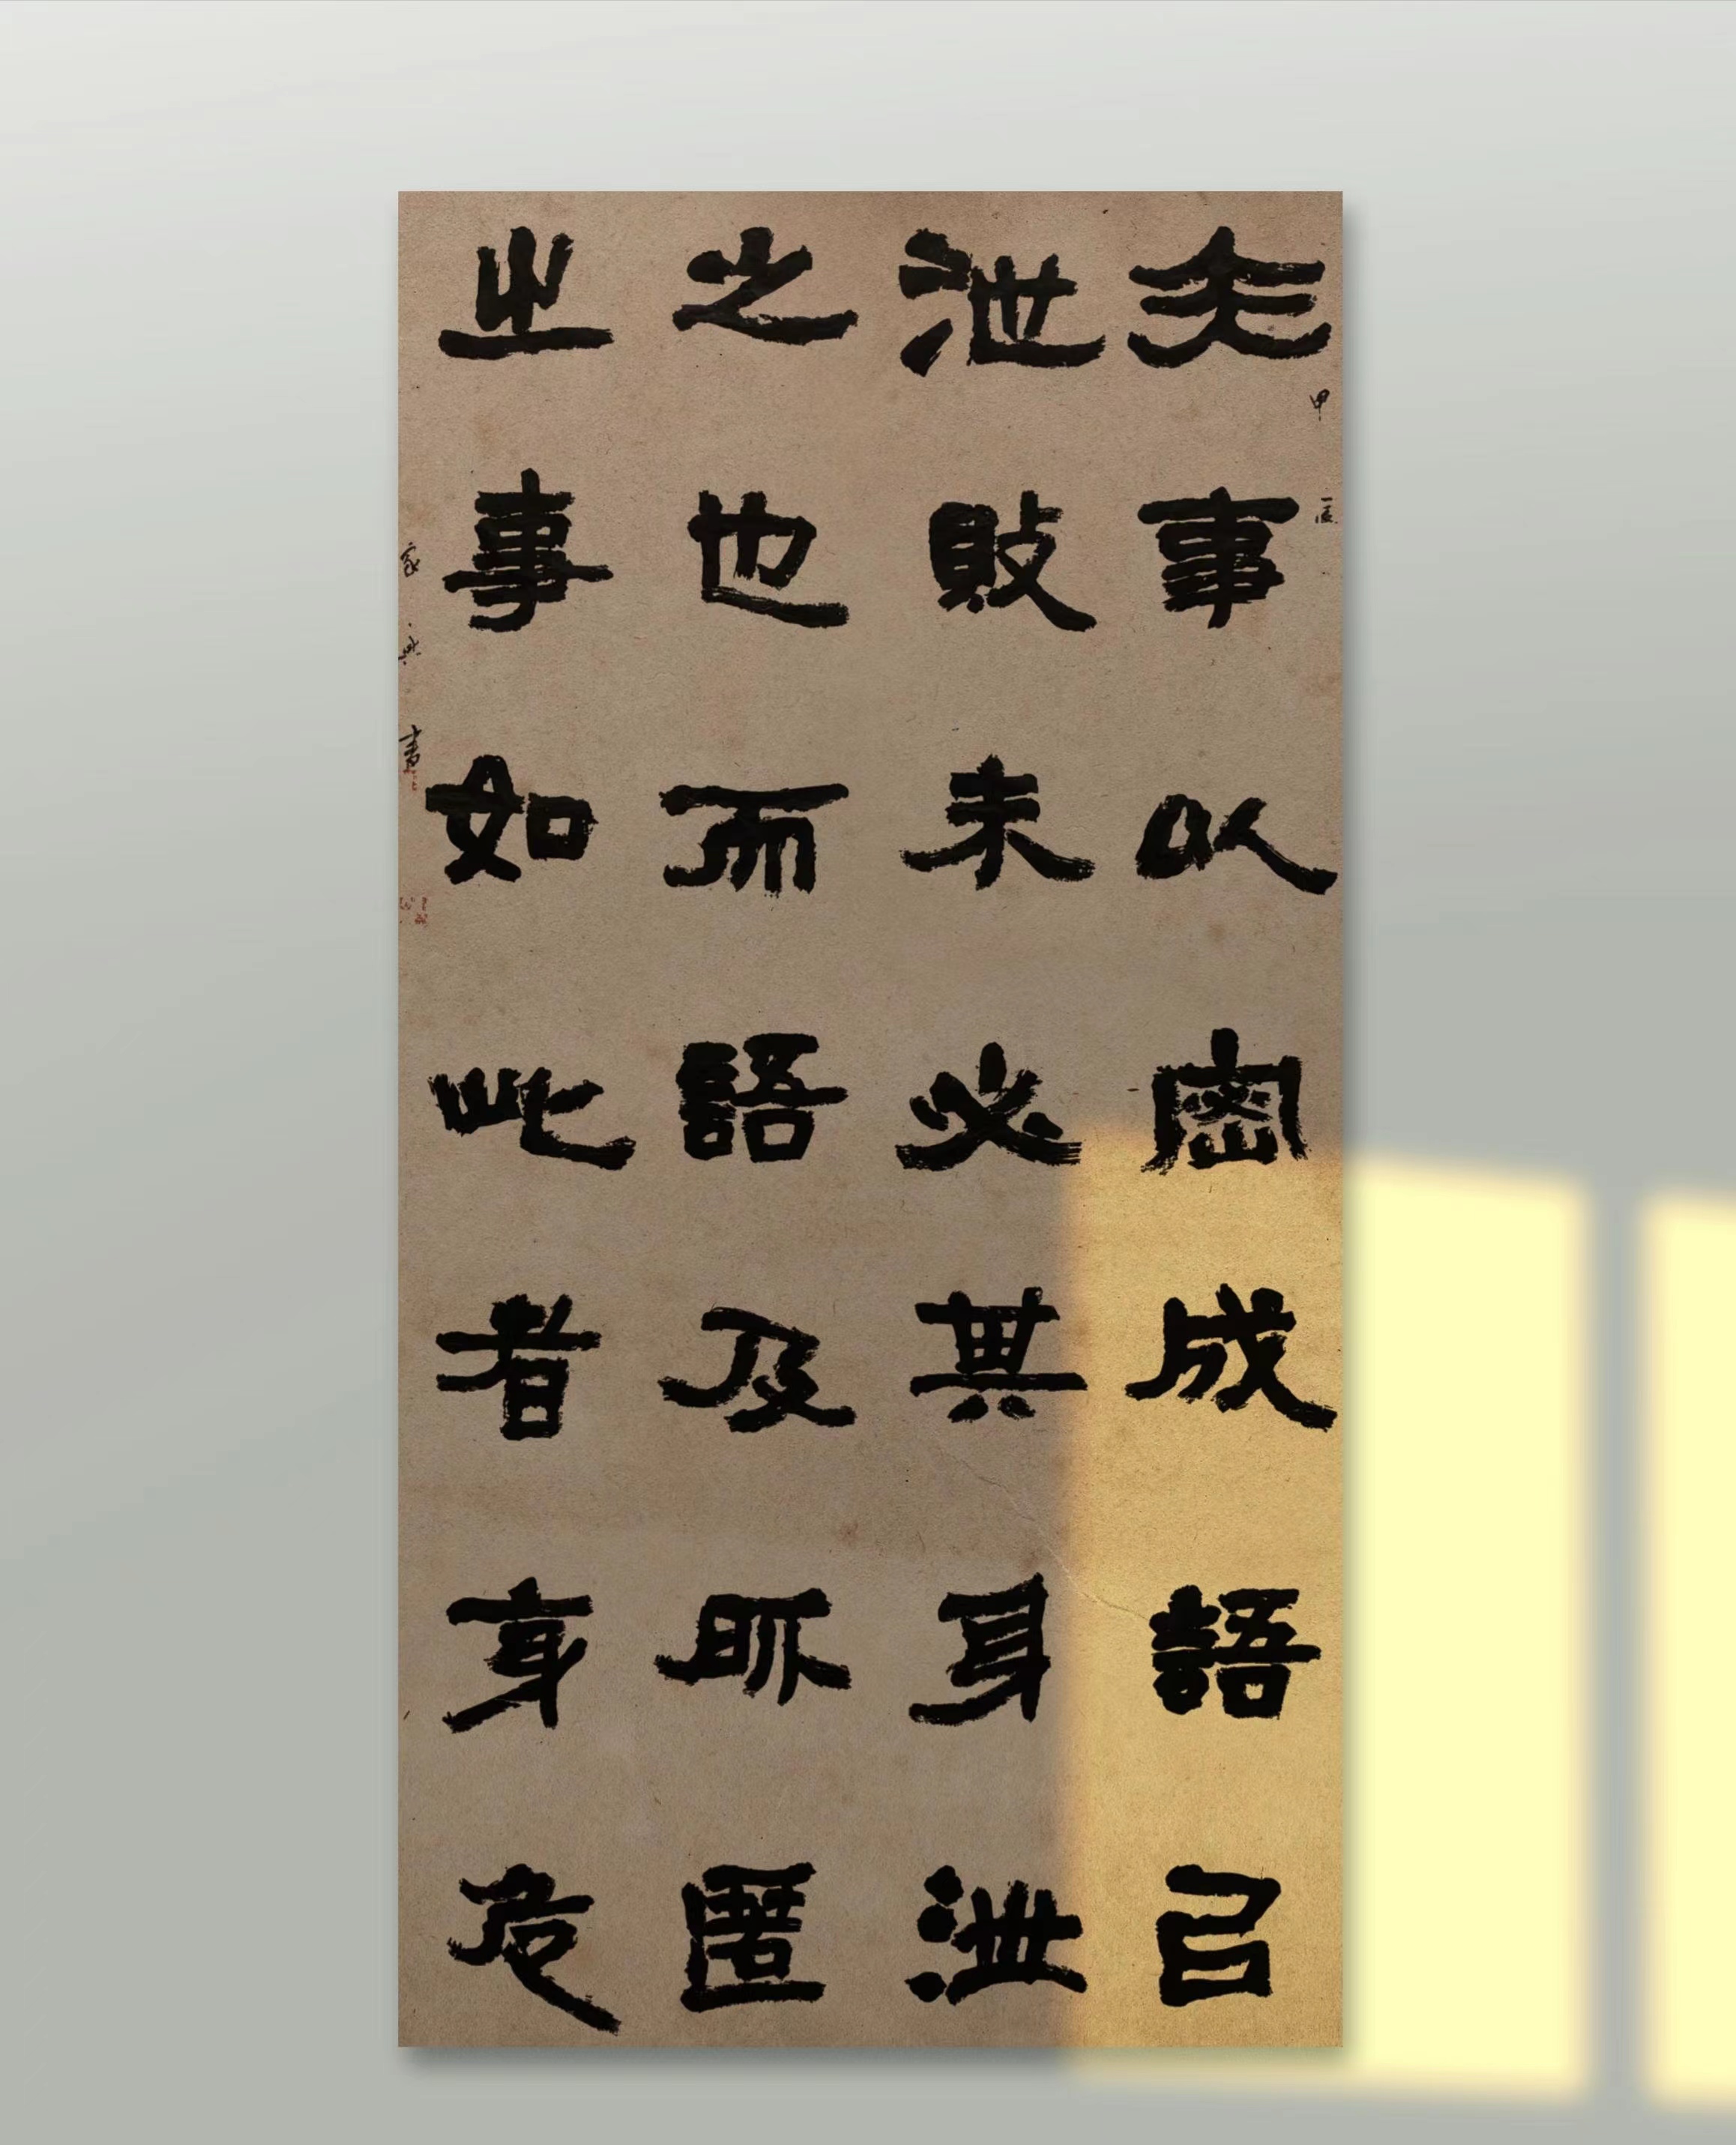 夫事以密成語以
泄敗未必其身泄
之也而語及所匿
之事如此者身危